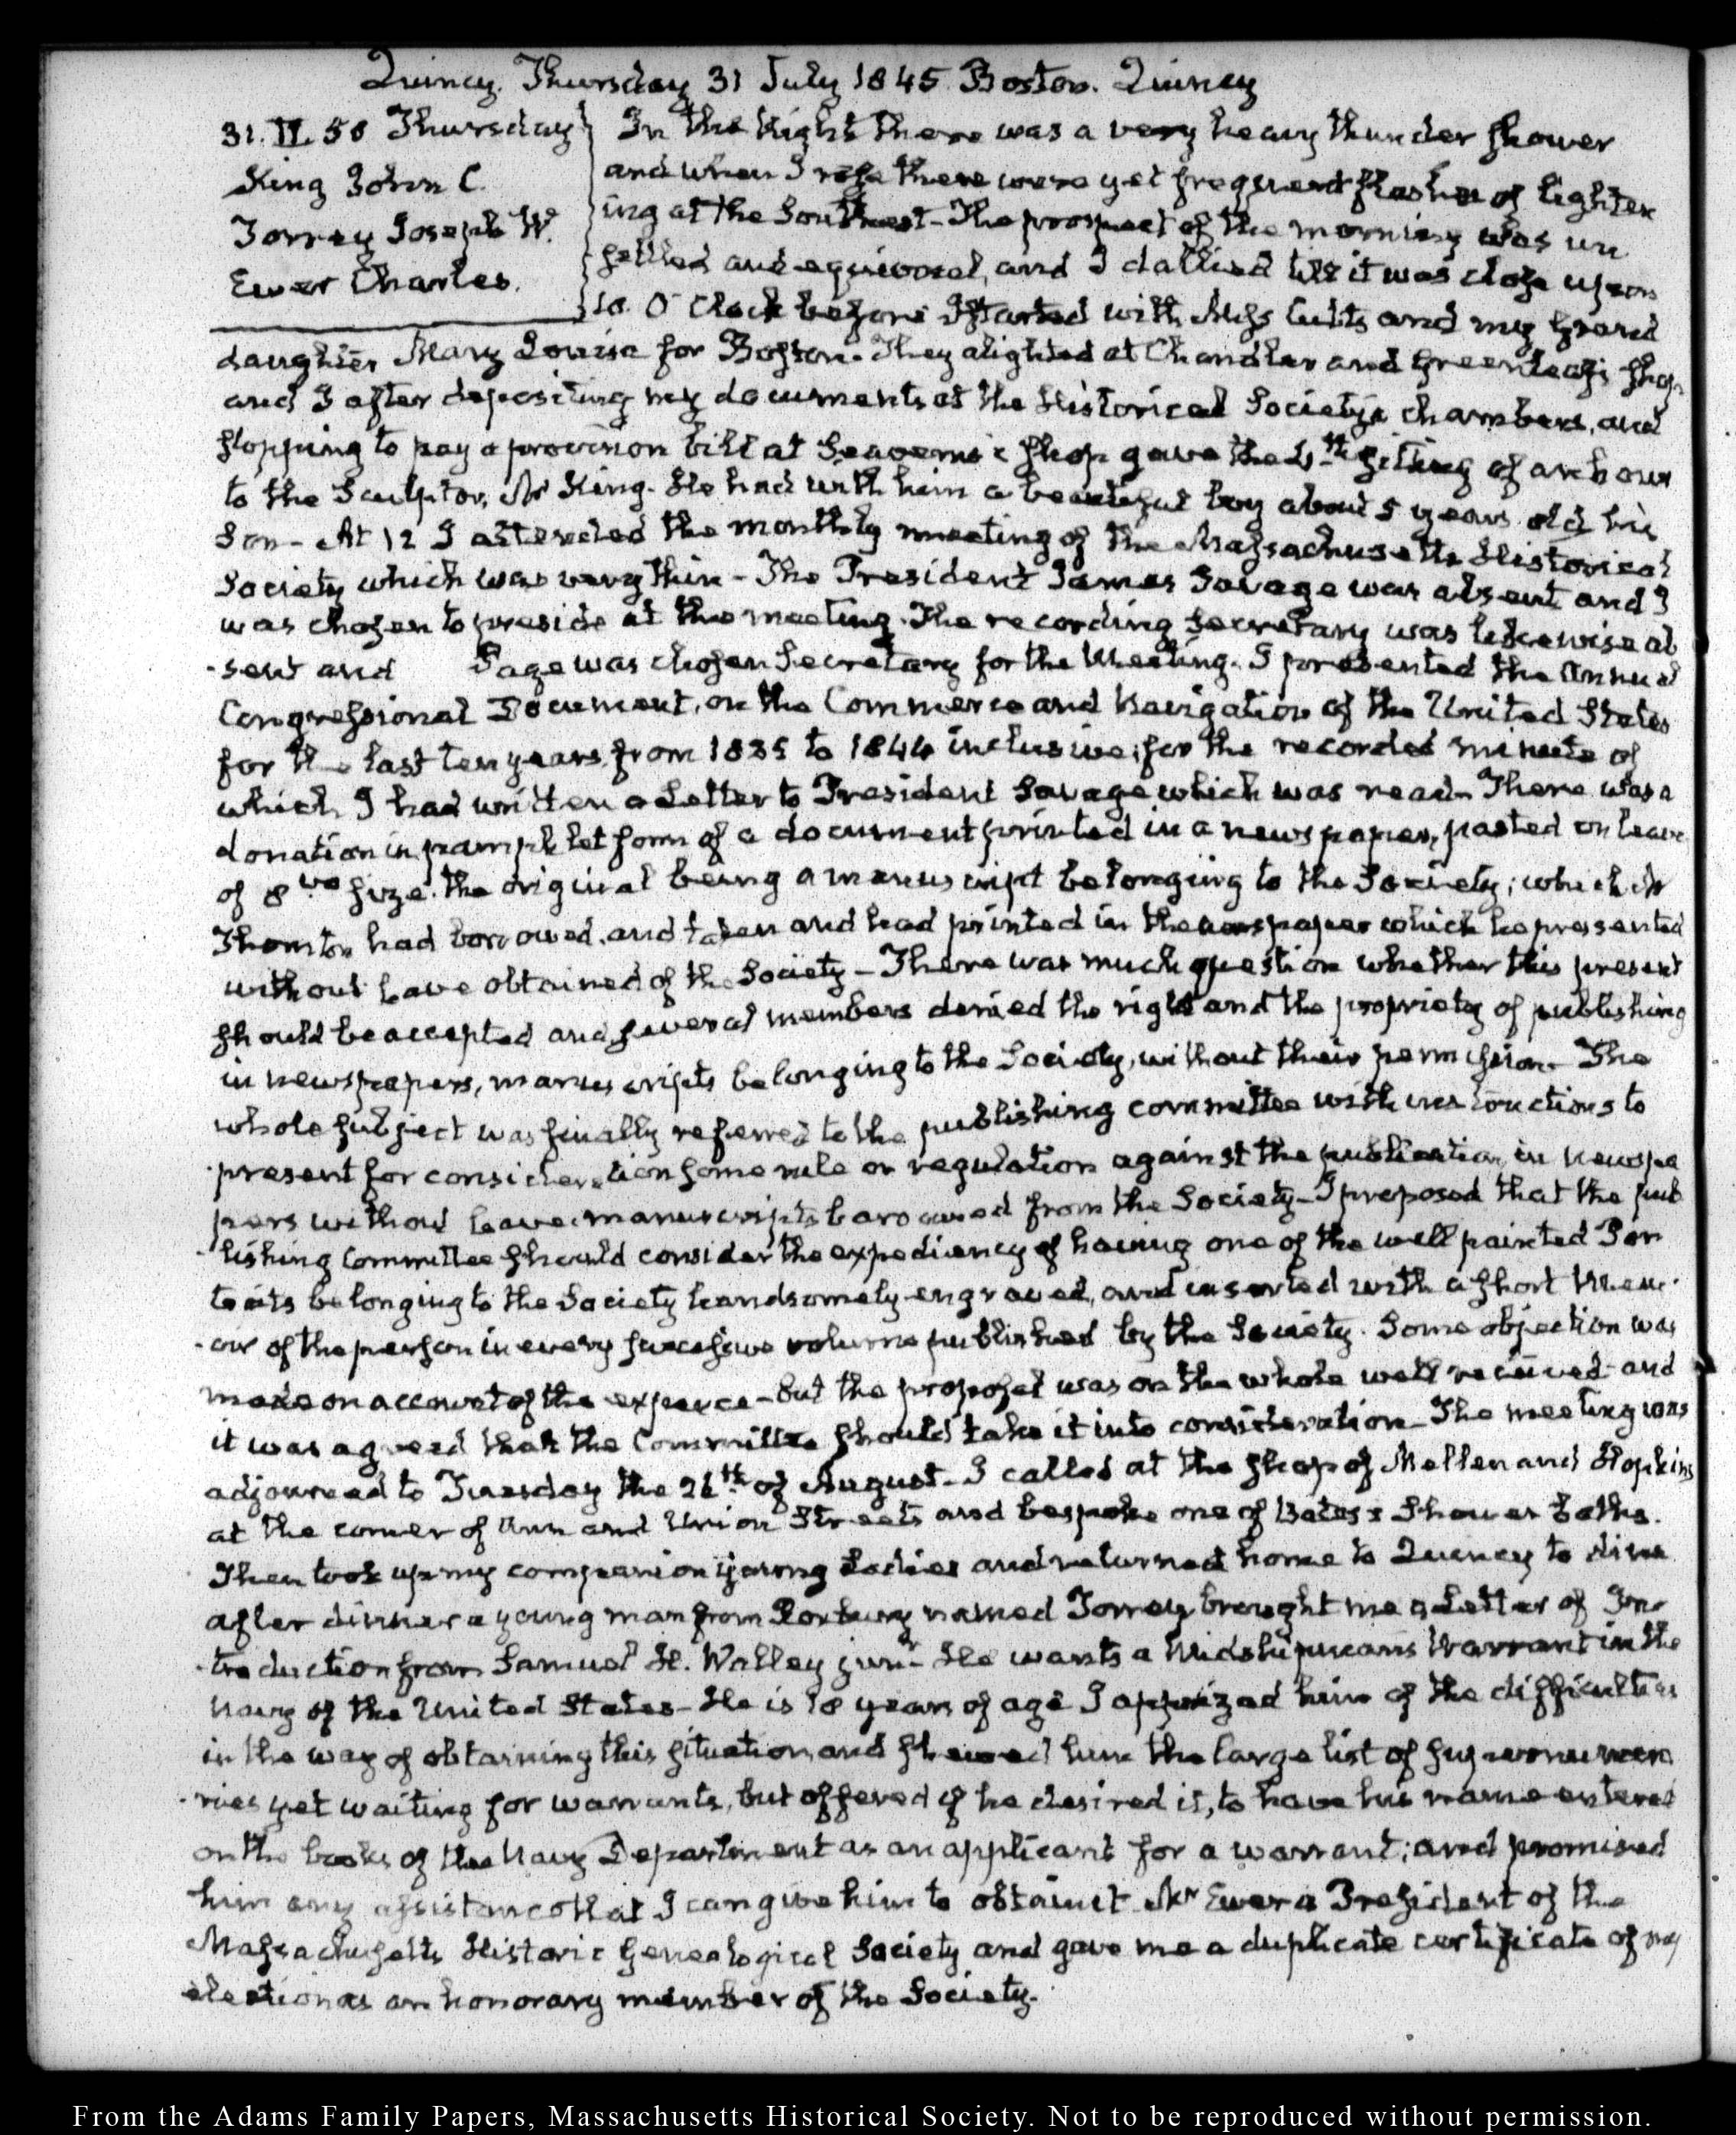 Quincy. Thursday 31 July 1845. Boston. Quincy
31. IV. 50 Thursday
King John C.
Torrey Joseph W.
Ewer Charles.
In the Night there was a very heavy thunder shower
and when I rose there were yet frequent flashes of lighten
ing at the Southwest - The prospect of the morning was un
settled and equivocal, and I dallied till it was close upon
10. O'Clock before I started with Miss Cutts and my Grand
daughter Mary Louisa for Boston. They alighted at Chandler and Greenleaf's shop
and I after depositing my documents at the Historical Society's chambers, and
stopping to pay a provision bill at Seaverns's shop gave the sitting of an hour
to the Sculptor, Mr King. He had with him a beautiful boy about 5 years old his
Son - At 12 I attended the monthly meeting of the Massachusetts Historical
Society which was very thin - The President James Savage was absent and I
was chosen to preside at the meeting. The recording Secretary was likewise ab
-sent and Page was chosen Secretary for the Meeting. I presented the Annual
Congressional Document, on the Commerce and Navigation of the United States
for the last ten years from 1835 to 1844 inclusive; for the recorded minute of
which I had written a Letter to President Savage which was read - There was a
donation in pamphlet form of a document printed in a newspaper, pasted on leave
of 8vo size. the original being a manuscript belonging to the Society; which Mr
Thornton had borrowed. and taken and had printed in the newspaper which he presented
without leave obtained of the Society - There was much question whether this present
should be accepted and several members denied the right and the propriety of publishing
in newspapers, manuscripts belonging to the Society, without their permission - The
whole subject was finally referred to the publishing committee with instructions to
present for consideration some rule or regulation against the publication in newspa
pers without leave. manuscripts borrowed from the Society - I proposed that the pub
-lishing Committee should consider the expediency of having one of the well painted Por
traits belonging to the Society handsomely engraved, and inserted with a short Mem
-oir of the person in every successive volume published by the Society. Some objection was
made on account of the expence - but the proposal was on the whole well received and
it was agreed that the Committee should take it into consideration - The meeting was
adjourned to Tuesday the 26th of August - I called at the shop of Mellen and Hopkins
at the corner of Ann and Union Streets and bespoke one of Bates's Shower baths.
Then took up my companion young Ladies and returned home to Quincy to dine
after dinner a young man from Roxbury named Torrey brought me a Letter of In
-troduction from Samuel H. Walley junr - He wants a Midshipman's Warrant in the
Navy of the United States - He is 18 years of age I apprized him of the difficulties
in the way of obtaining this situation and shewed him the large list of supernumera
-ries yet waiting for warrants, but offered if he desired it, to have his name entered
on the books of the Navy Department as an applicant for a warrant; and promised
him any assistance that I can give him to obtain it. Mr Ewer is President of the
Massachusetts Historic Genealogical Society and gave me a duplicate certificate of my
election as an honorary member of the Society.
From the Adams Family Papers, Massachusetts Historical Society. Not to be reproduced without permission.